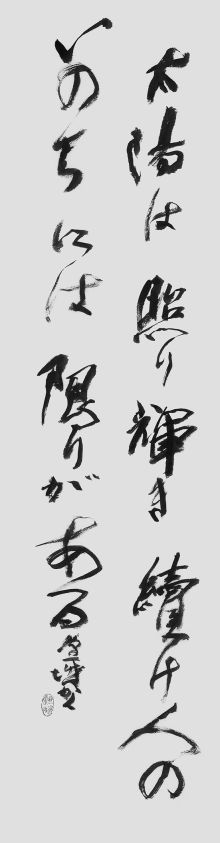 太陽は照り輝き續け人の
いのちには限りがある